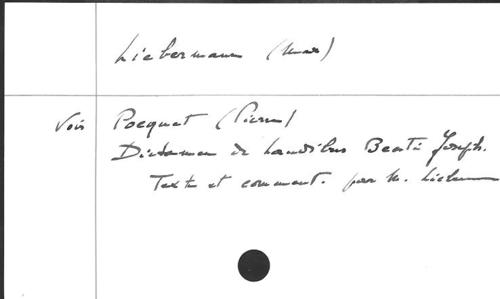 Liebermann (Max)
Voir Pocquet (Pierre)
Dictamen de Laudibus Beati Joseph.
Texte et comment. par M. Lieberm